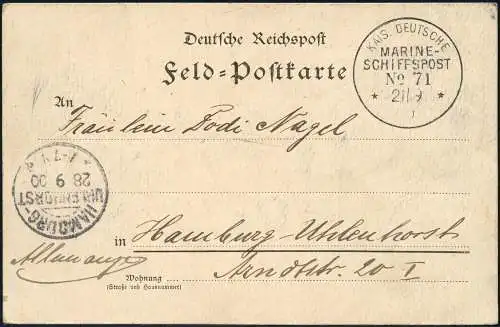 Deutsche Reichspost
Feld-Postkarte
KAIS. DEUTSCHE
MARINE-
SCHIFFSPOST
No 71
* 21/9 *
An
Fräulein Dodi Nagel
1-7 V.
28 9 00
UHLENHORST
HAMBURG-
in Hamburg-Uhlenhorst
Arndtstr. 20 I
Wohnung
(Straße und Hausnummer)